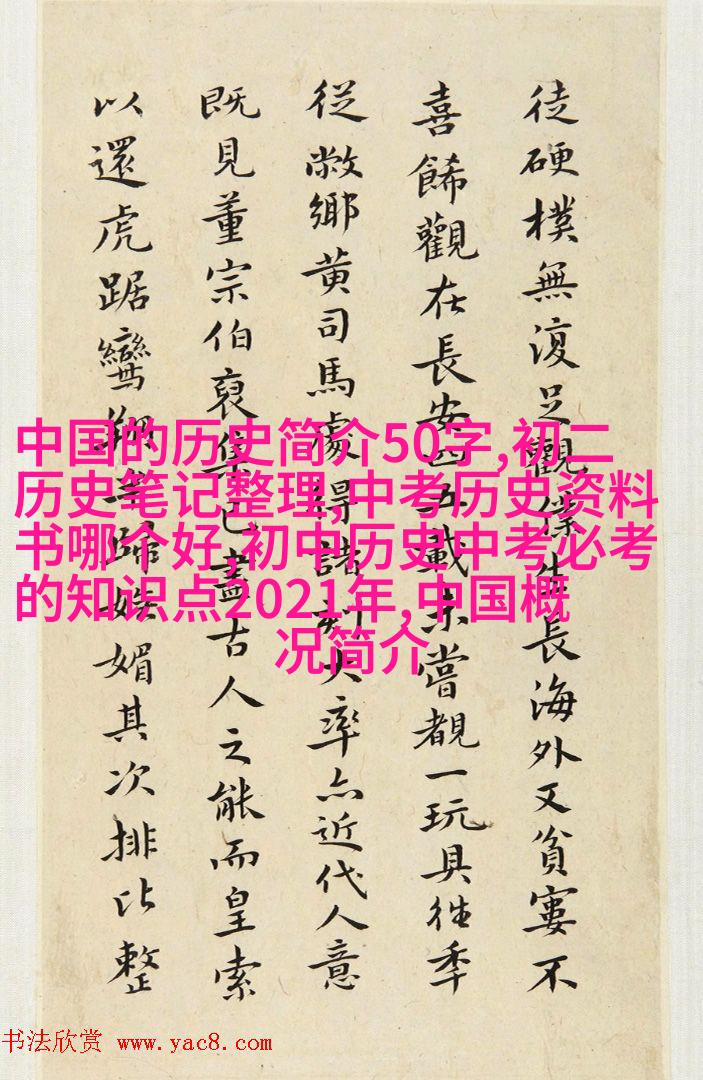 徒硬樸無復足觀僕生長海外又貧窶不
喜餙觀在長安四五載未嘗覩一玩具往季
從敝鄉黃司馬處得諸刻大率亦近代人意
既見董宗伯裒集已盡古人之能而皇索
以還虎踞鸞翔媚其次排比整
中国的历史简介50字,初二
历史笔记整理,中考历史资料
书哪个好,初中历史中考必考
的知识点2021年,中国概
况简介
书法欣赏 www.yac8.com